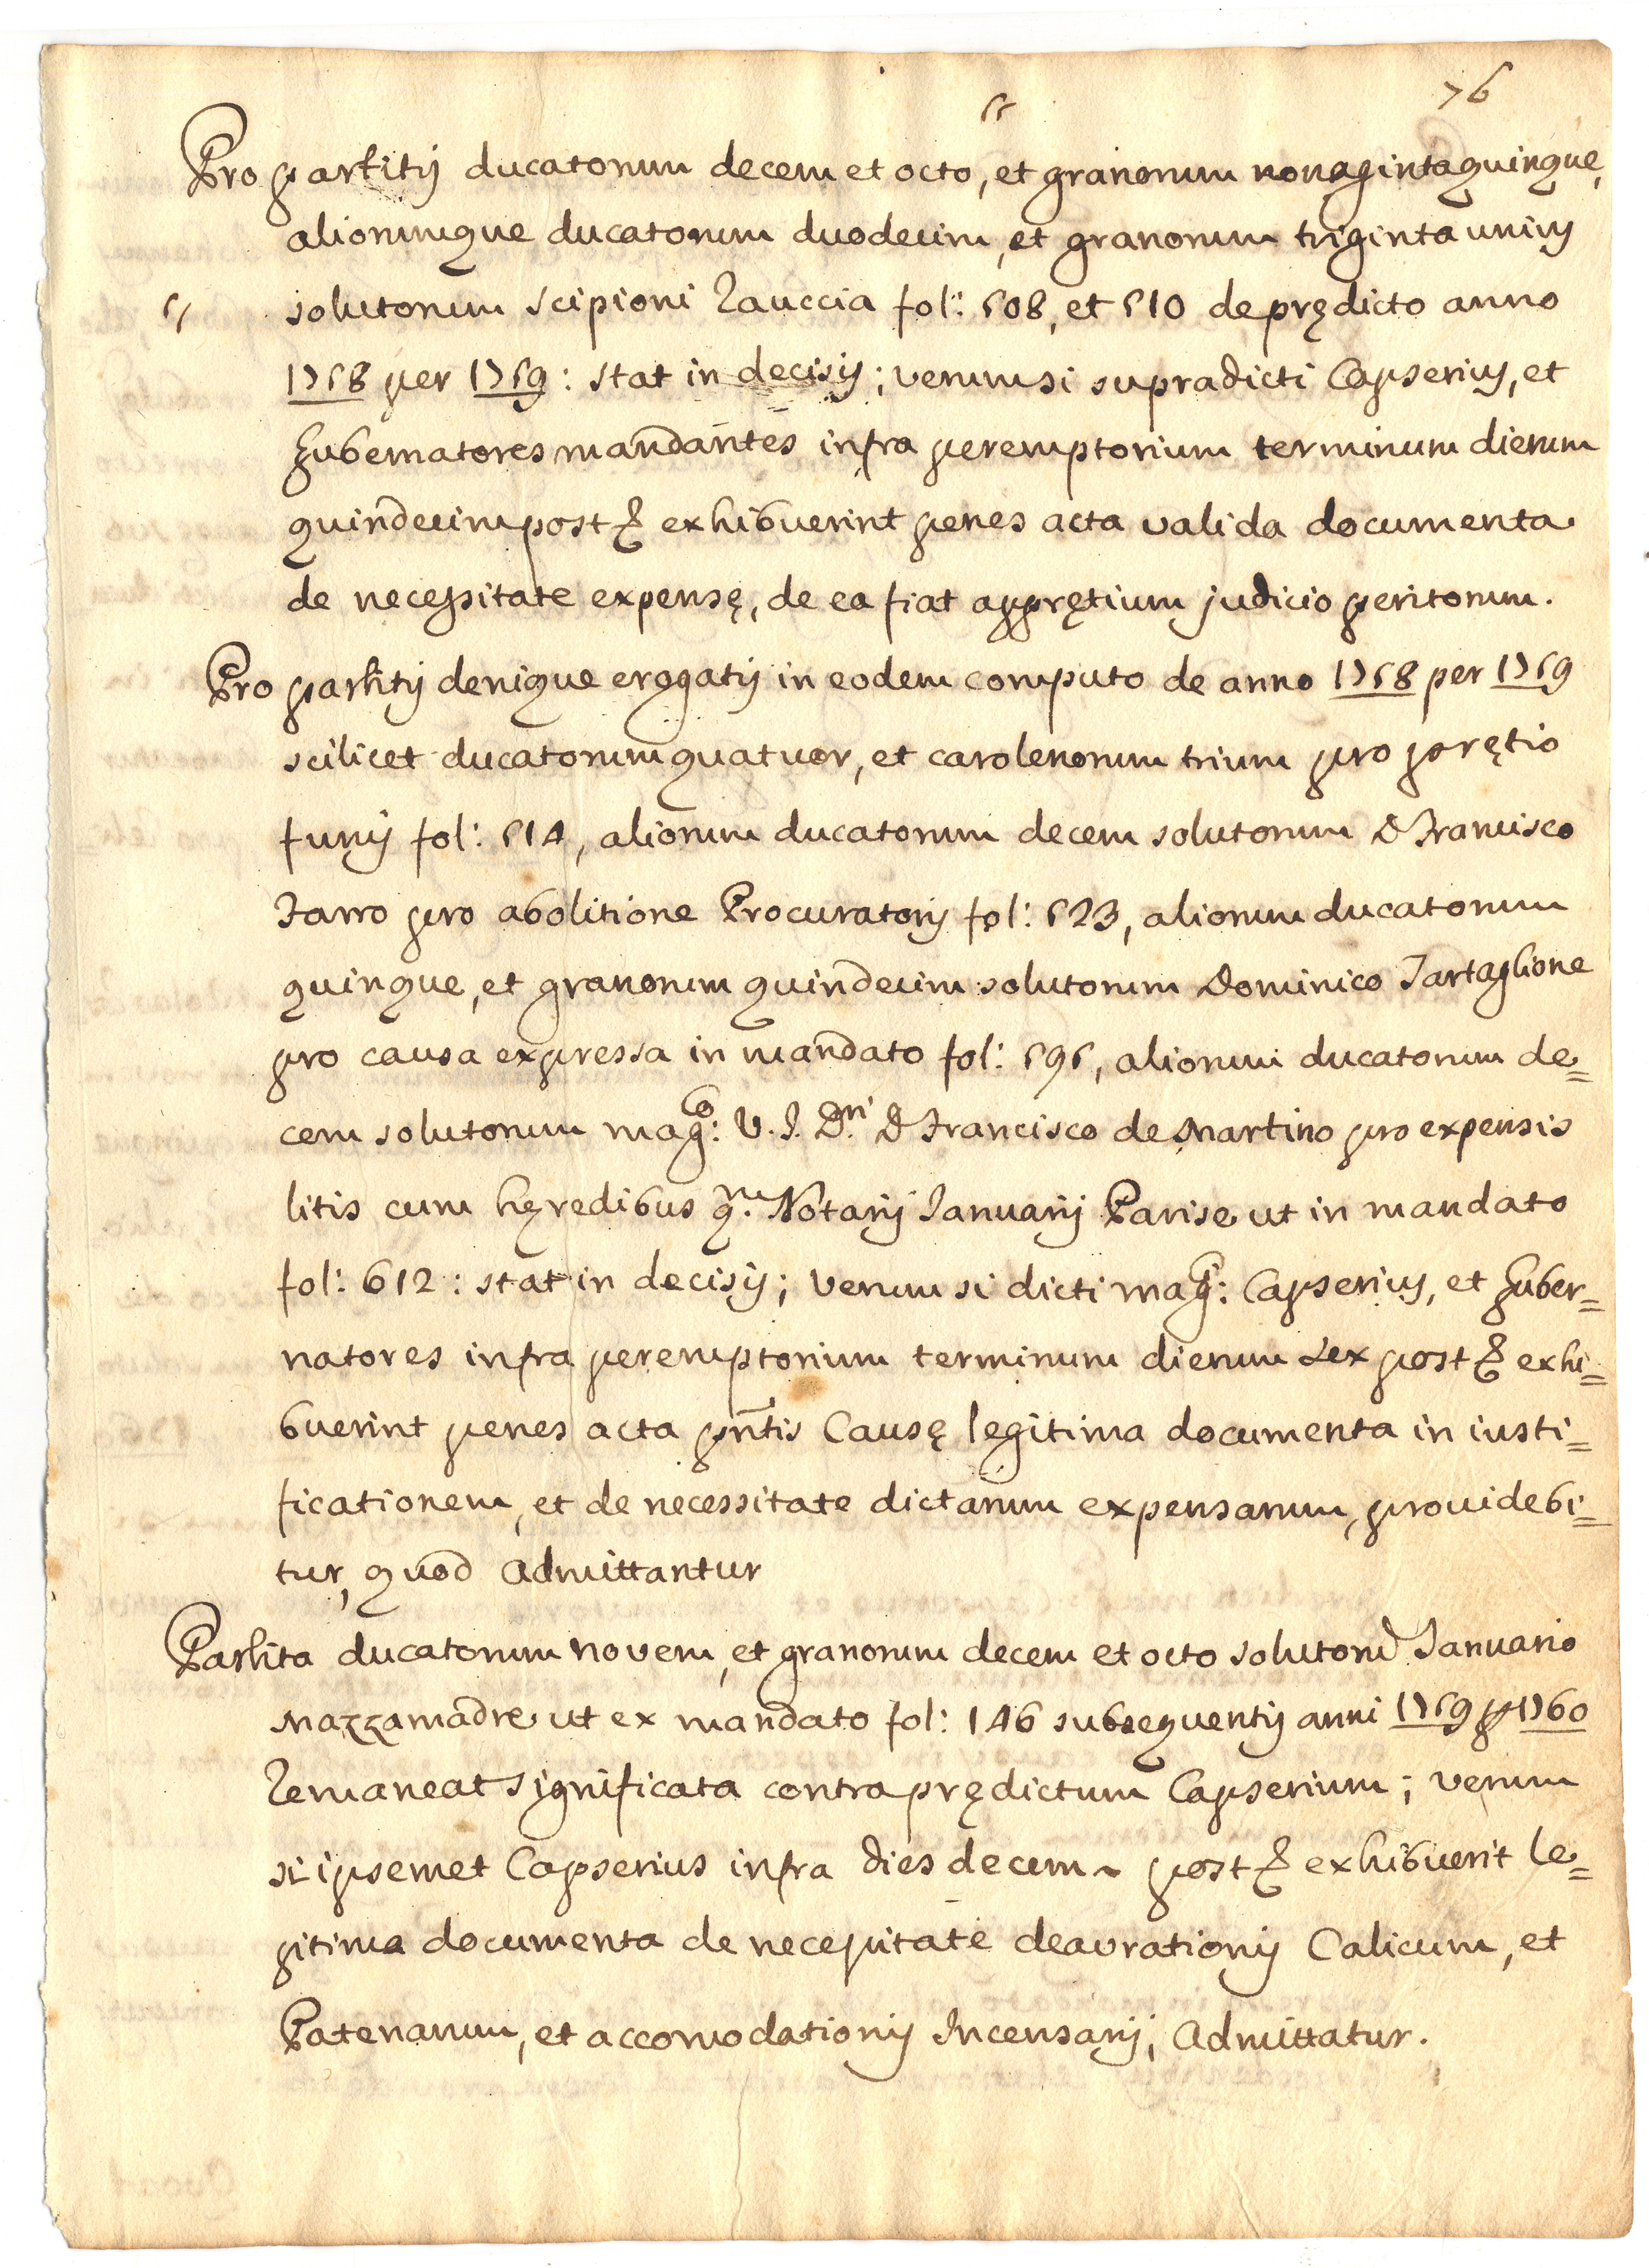 76
Pro partitis ducatorum decem et octo, et granorum nonaginta quinque,
aliorumque ducatorum duodecim, et granorum triginta unius
solutorum Scipioni Rauccia fol: 508, et 510 de prędicto anno
1758 per 1759: stat in decisis; verum si supradicti Capserius, et
Gubernatores mandantes infra peremptorium terminum dierum
quindecim post &c exhibuerint penes acta valida documenta
de necessitate expensę, de ea fiat apprętium judicio peritorum.
Pro partitis denique erogatis in eodem computo de anno 1758 per 1759
scilicet ducatorum quatuor, et carolenorum trium pro prętio
funis fol: 514, aliorum ducatorum decem solutorum D. Francisco
Farro pro abolitione Procuratoris fol: 523, aliorum ducatorum
quinque, et granorum quindecim solutorum Dominico Tartaglione
pro causa expressa in mandato fol: 595, aliorum ducatorum de=
cem solutorum mag:co U. J. D.ri D. Francisco de Martino pro expensis
litis cum hęredibus q.m Notarij Januarij Parise ut in mandato
fol: 612: stat in decisis; verum si dicti mag:ci Capserius, et Guber=
natores infra peremptorium terminum dierum sex post &c exhi=
buerint penes acta pntis Causę legitima documenta in iusti=
ficationem, et de necessitate dictarum expensarum, providebi=
tur, quod Admittantur
Partita ducatorum novem, et granorum decem et octo solutorum Januario
Mazzamadre ut ex mandato fol: 146 subsequentis anni 1759 p 1760
Remaneat significata contra prędictum Capserium; verum
si ipsemet Capserius infra dies decem post &c exhibuerit le=
gitima documenta de necessitate deaurationis Calicum, et
Patenarum, et accomodationis Incensarij, Admittatur.